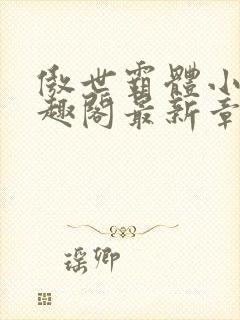 傲世霸體小
趣閣最新章
瑶卿